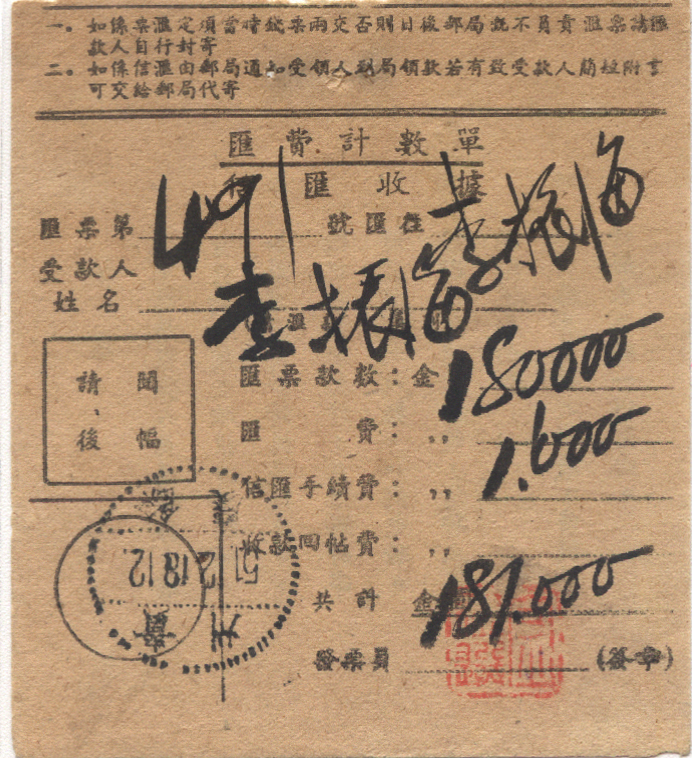 一。如係票滙定須當時錢票兩交否則日後郵局概不負責滙票請匯
款人自行封寄
二。如係信滙由郵局通知受領人到局領款若有致受款人簡短附言
可交給郵局代寄
匯費計數單
匯收據
匯票第 491 號匯往 李振海
受款人
姓名 李振海
請閱
後幅
匯票款數：金 180000
匯費：,, 1.000
信匯手續費：,,
收款回帖費：,,
共計 金 181.000
發票員 (簽章)
51 12 18 12